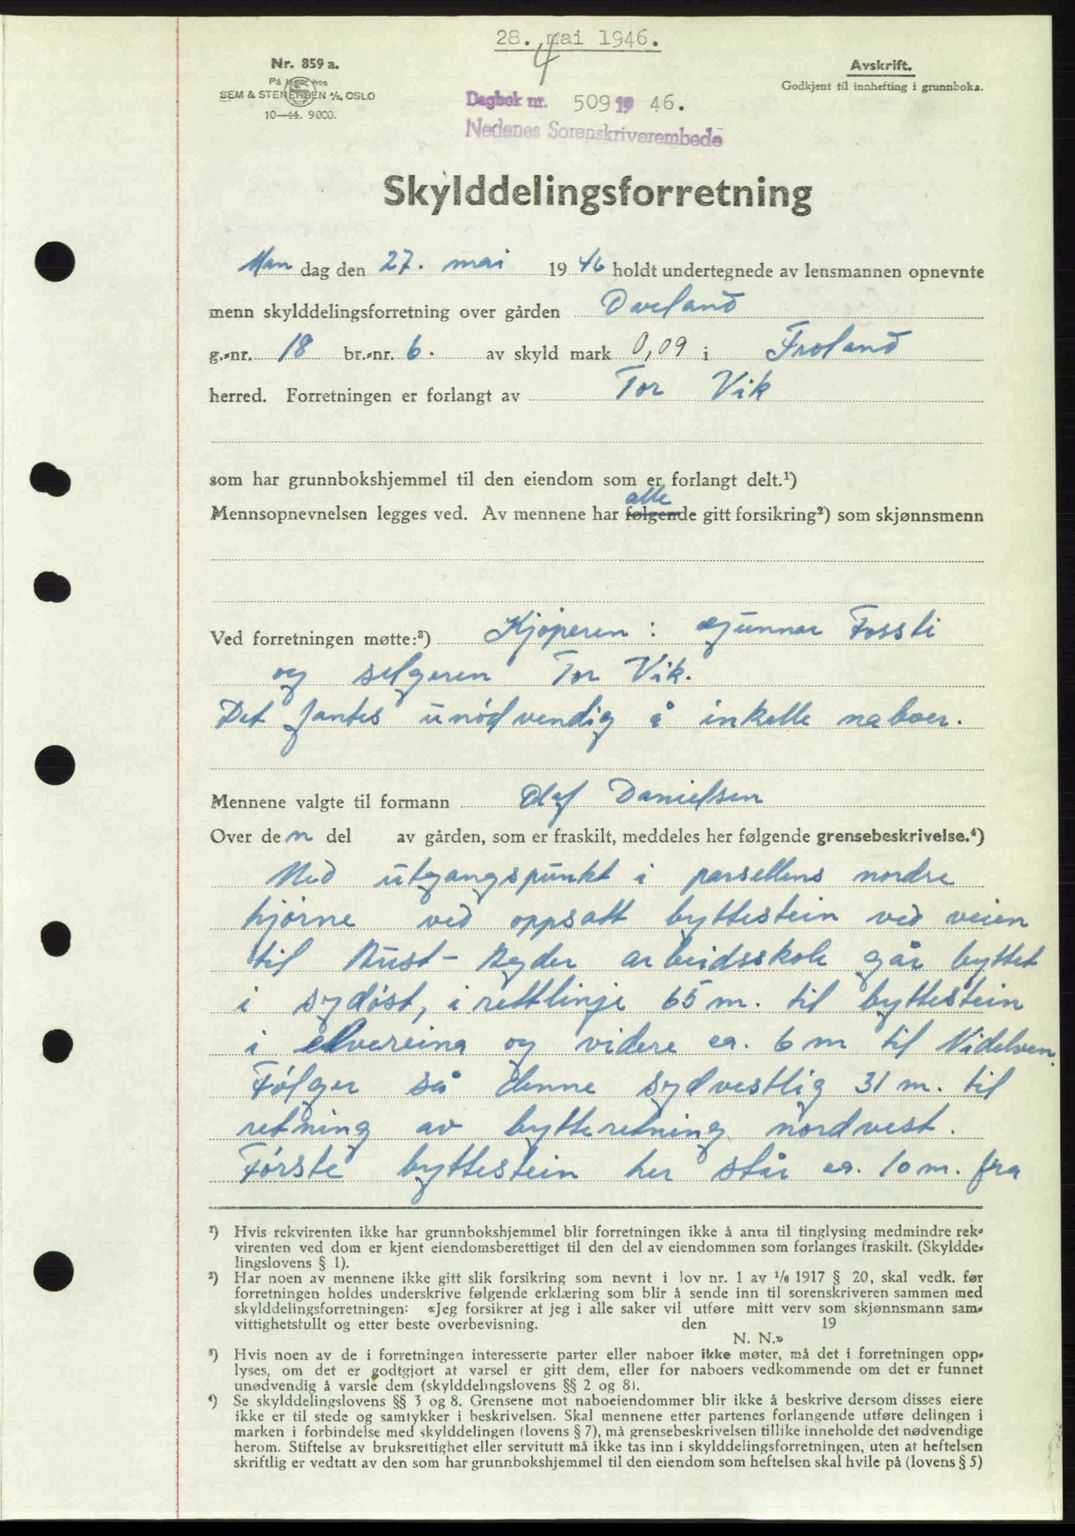 28. mai 1946.
4
Nr. 859 a.
På lager hos
SEM & STENERSEN A/S, OSLO
10—44. 9000.
Avskrift.
Godkjent til innhefting i grunnboka.
Dagbok nr. 509 19 46.
Nedenes Sorenskriverembede
Skylddelingsforretning
Man dag den 27. mai 19 46 holdt undertegnede av lensmannen opnevnte
menn skylddelingsforretning over gården Dæland
g.-nr. 18 br.-nr. 6. av skyld mark 0,09 i Froland
herred. Forretningen er forlangt av Tor Vik
som har grunnbokshjemmel til den eiendom som er forlangt delt.¹)
alle
Mennsopnevnelsen legges ved. Av mennene har følgende gitt forsikring²) som skjønnsmenn
Ved forretningen møtte:³) Kjøperen: Gunnar Fossli
og selgeren Tor Vik.
Det fantes unødvendig å inkelle naboer.
Mennene valgte til formann Olaf Danielsen
Over den del av gården, som er fraskilt, meddeles her følgende grensebeskrivelse.⁴)
Med utgangspunkt i parsellens nordre
hjørne ved oppsatt byttestein ved veien
til Aust-Agder arbeidsskole går byttet
i sydøst, i rettlinje 65 m. til byttestein
i elvereina og videre ca. 6 m til Nidelven.
Følger så denne sydvestlig 31 m. til
retning av bytteretning nordvest.
Første byttestein her står ca. 10 m. fra
²) Hvis rekvirenten ikke har grunnbokshjemmel blir forretningen ikke å anta til tinglysing medmindre rek-
virenten ved dom er kjent eiendomsberettiget til den del av eiendommen som forlanges fraskilt. (Skyldde-
lingslovens § 1).
²) Har noen av mennene ikke gitt slik forsikring som nevnt i lov nr. 1 av 1/6 1917 § 20, skal vedk. før
forretningen holdes underskrive følgende erklæring som blir å sende inn til sorenskriveren sammen med
skylddelingsforretningen: «Jeg forsikrer at jeg i alle saker vil utføre mitt verv som skjønnsmann sam-
vittighetsfullt og etter beste overbevisning. den 19
N. N.»
³) Hvis noen av de i forretningen interesserte parter eller naboer ikke møter, må det i forretningen opp-
lyses, om det er godtgjort at varsel er gitt dem, eller for naboers vedkommende om det er funnet
unødvendig å varsle dem (skylddelingslovens §§ 2 og 8).
⁴) Se skylddelingslovens §§ 3 og 8. Grensene mot naboeiendommer blir ikke å beskrive dersom disses eiere
ikke er til stede og samtykker i beskrivelsen. Skal mennene etter partenes forlangende utføre delingen i
marken i forbindelse med skylddelingen (lovens § 7), må grensebeskrivelsen tillike inneholde det nødvendige
herom. Stiftelse av bruksrettighet eller servitutt må ikke tas inn i skylddelingsforretningen, uten at heftelsen
skriftlig er vedtatt av den som har grunnbokshjemmel til den eiendom som heftelsen skal hvile på (lovens § 5)